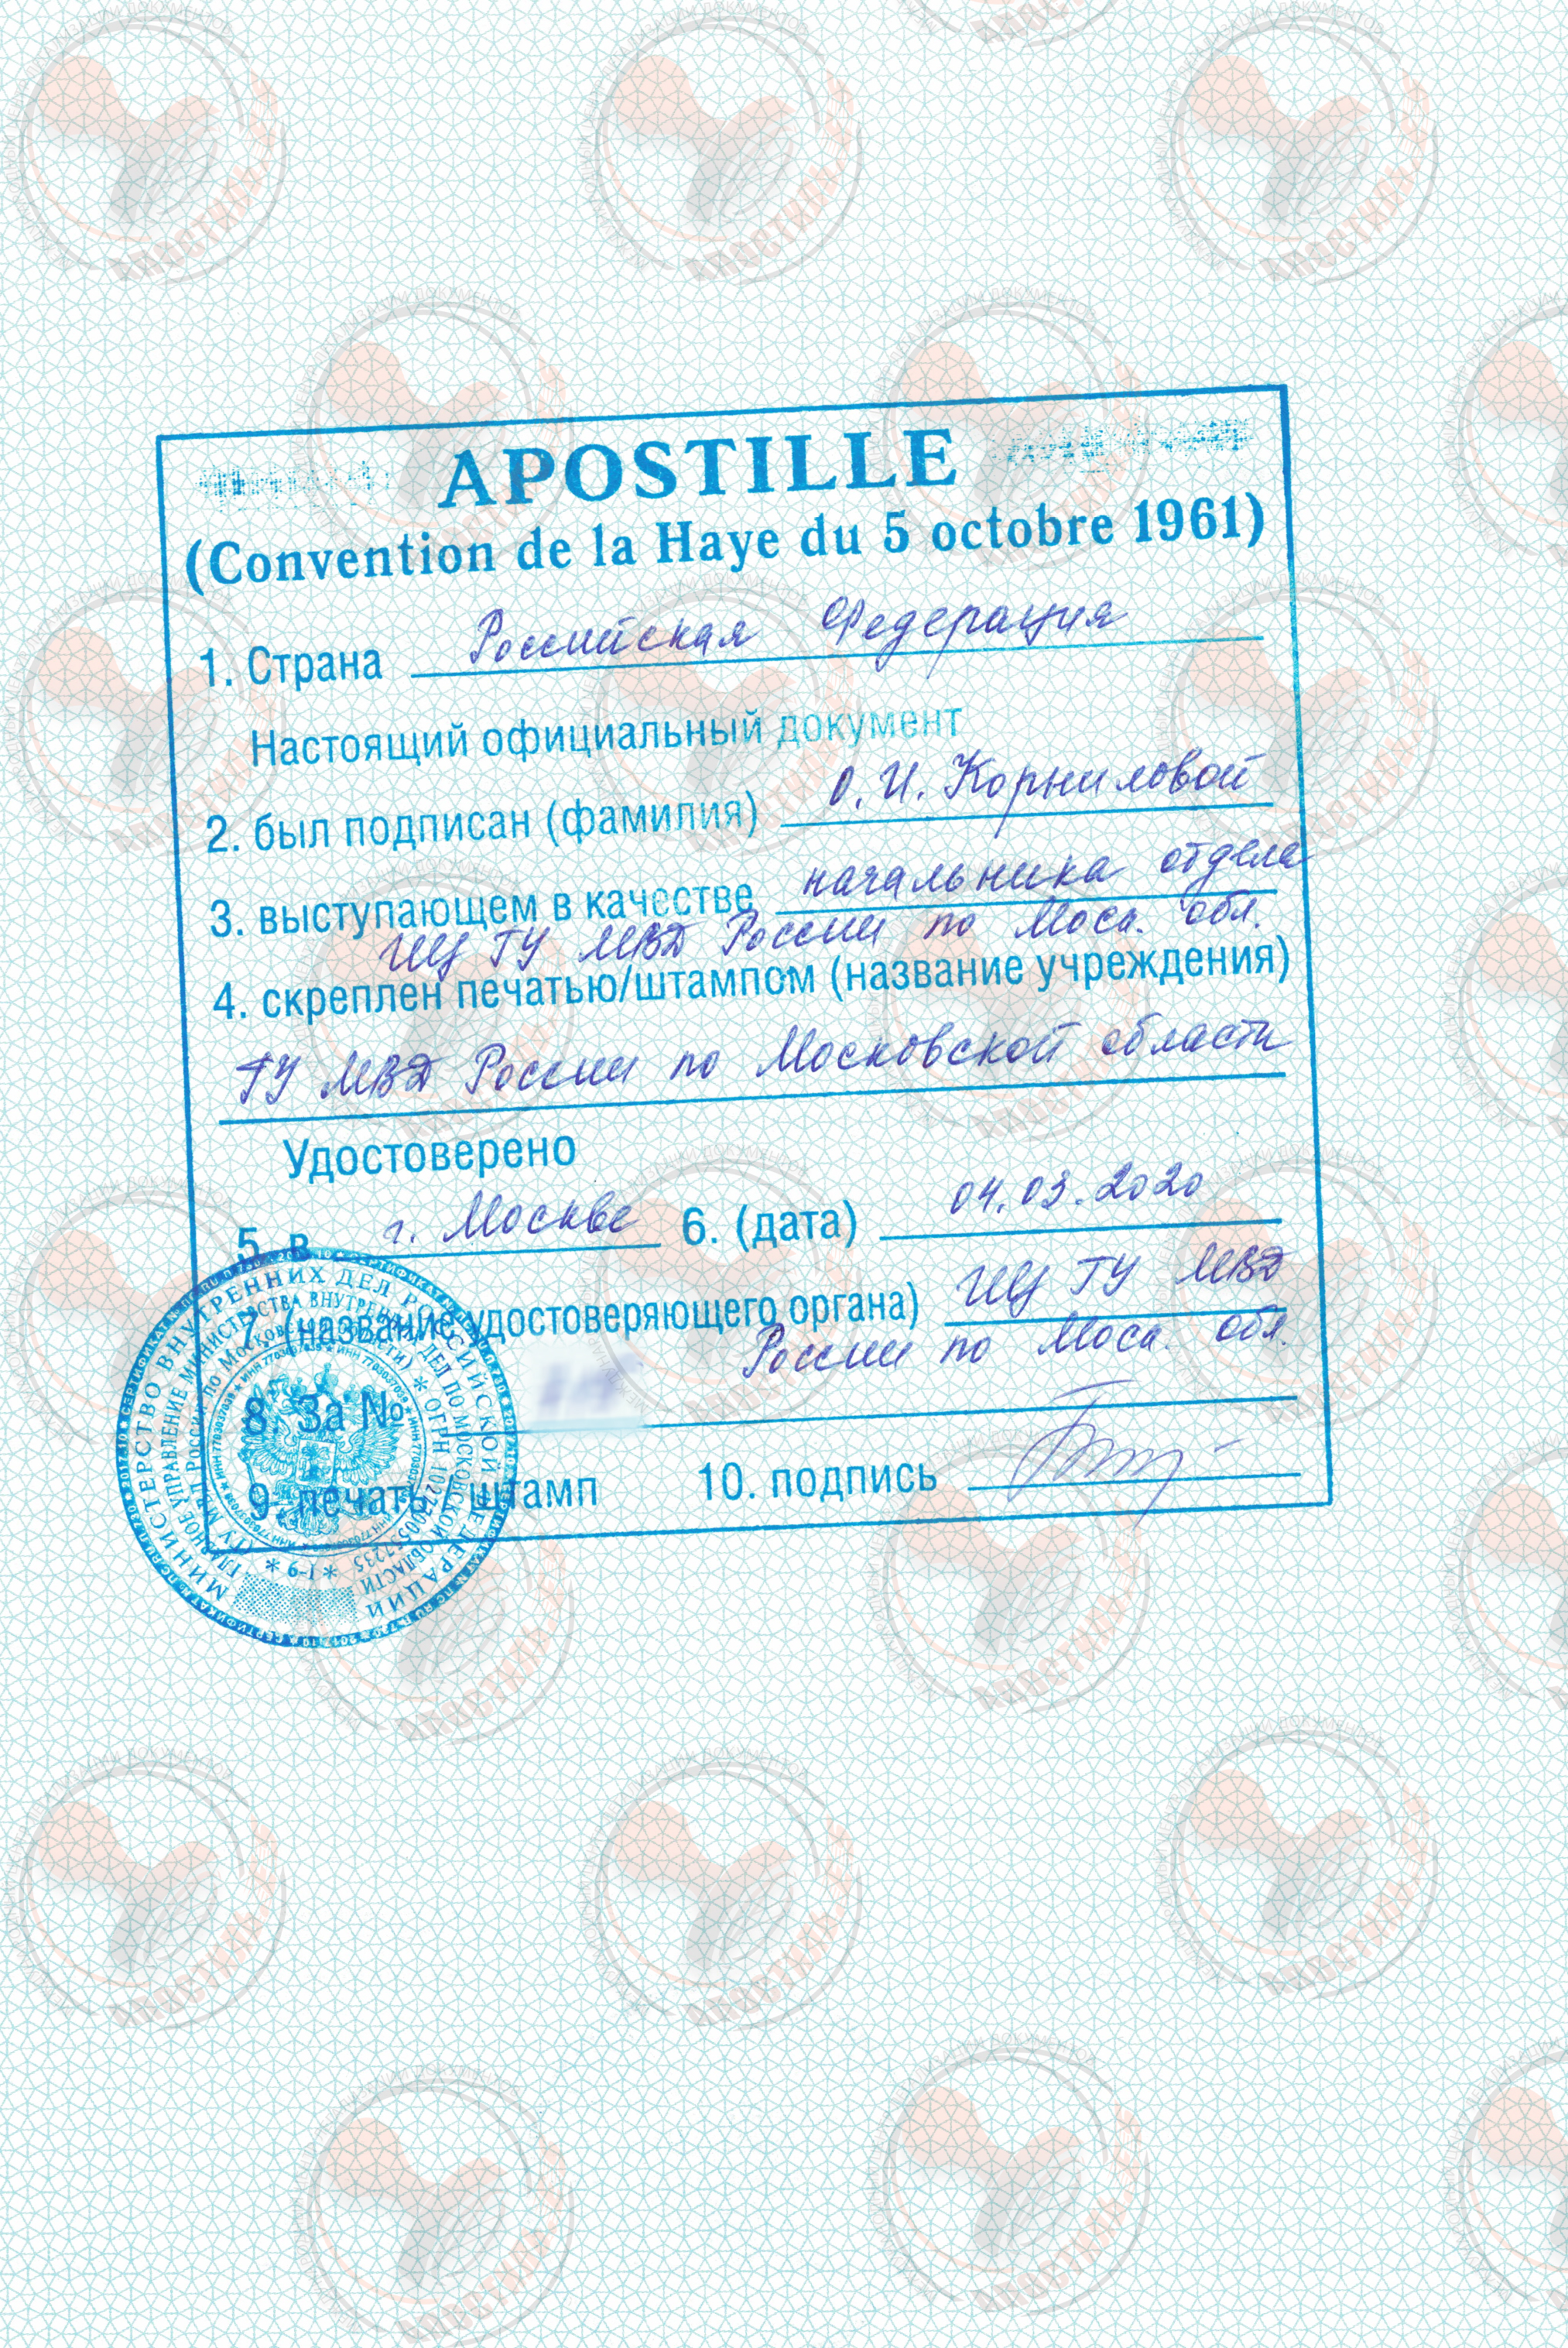 APOSTILLE
(Convention de la Haye du 5 octobre 1961)
1. Страна Российская Федерация
Настоящий официальный документ
2. был подписан (фамилия) О. И. Корниловой
3. выступающем в качестве начальника отдела
ИЦ ГУ МВД России по Моск. обл.
4. скреплен печатью/штампом (название учреждения)
ГУ МВД России по Московской области
Удостоверено
5. в г. Москве 6. (дата) 04.03.2020
7. (название удостоверяющего органа) ИЦ ГУ МВД
России по Моск. обл.
8. За №
9. печать / штамп 10. подпись
МИНИСТЕРСТВО ВНУТРЕННИХ ДЕЛ РОССИЙСКОЙ ФЕДЕРАЦИИ
ГЛАВНОЕ УПРАВЛЕНИЕ МИНИСТЕРСТВА ВНУТРЕННИХ ДЕЛ ПО МОСКОВСКОЙ ОБЛАСТИ
* 6-1 *
АПОСТИЛЬ